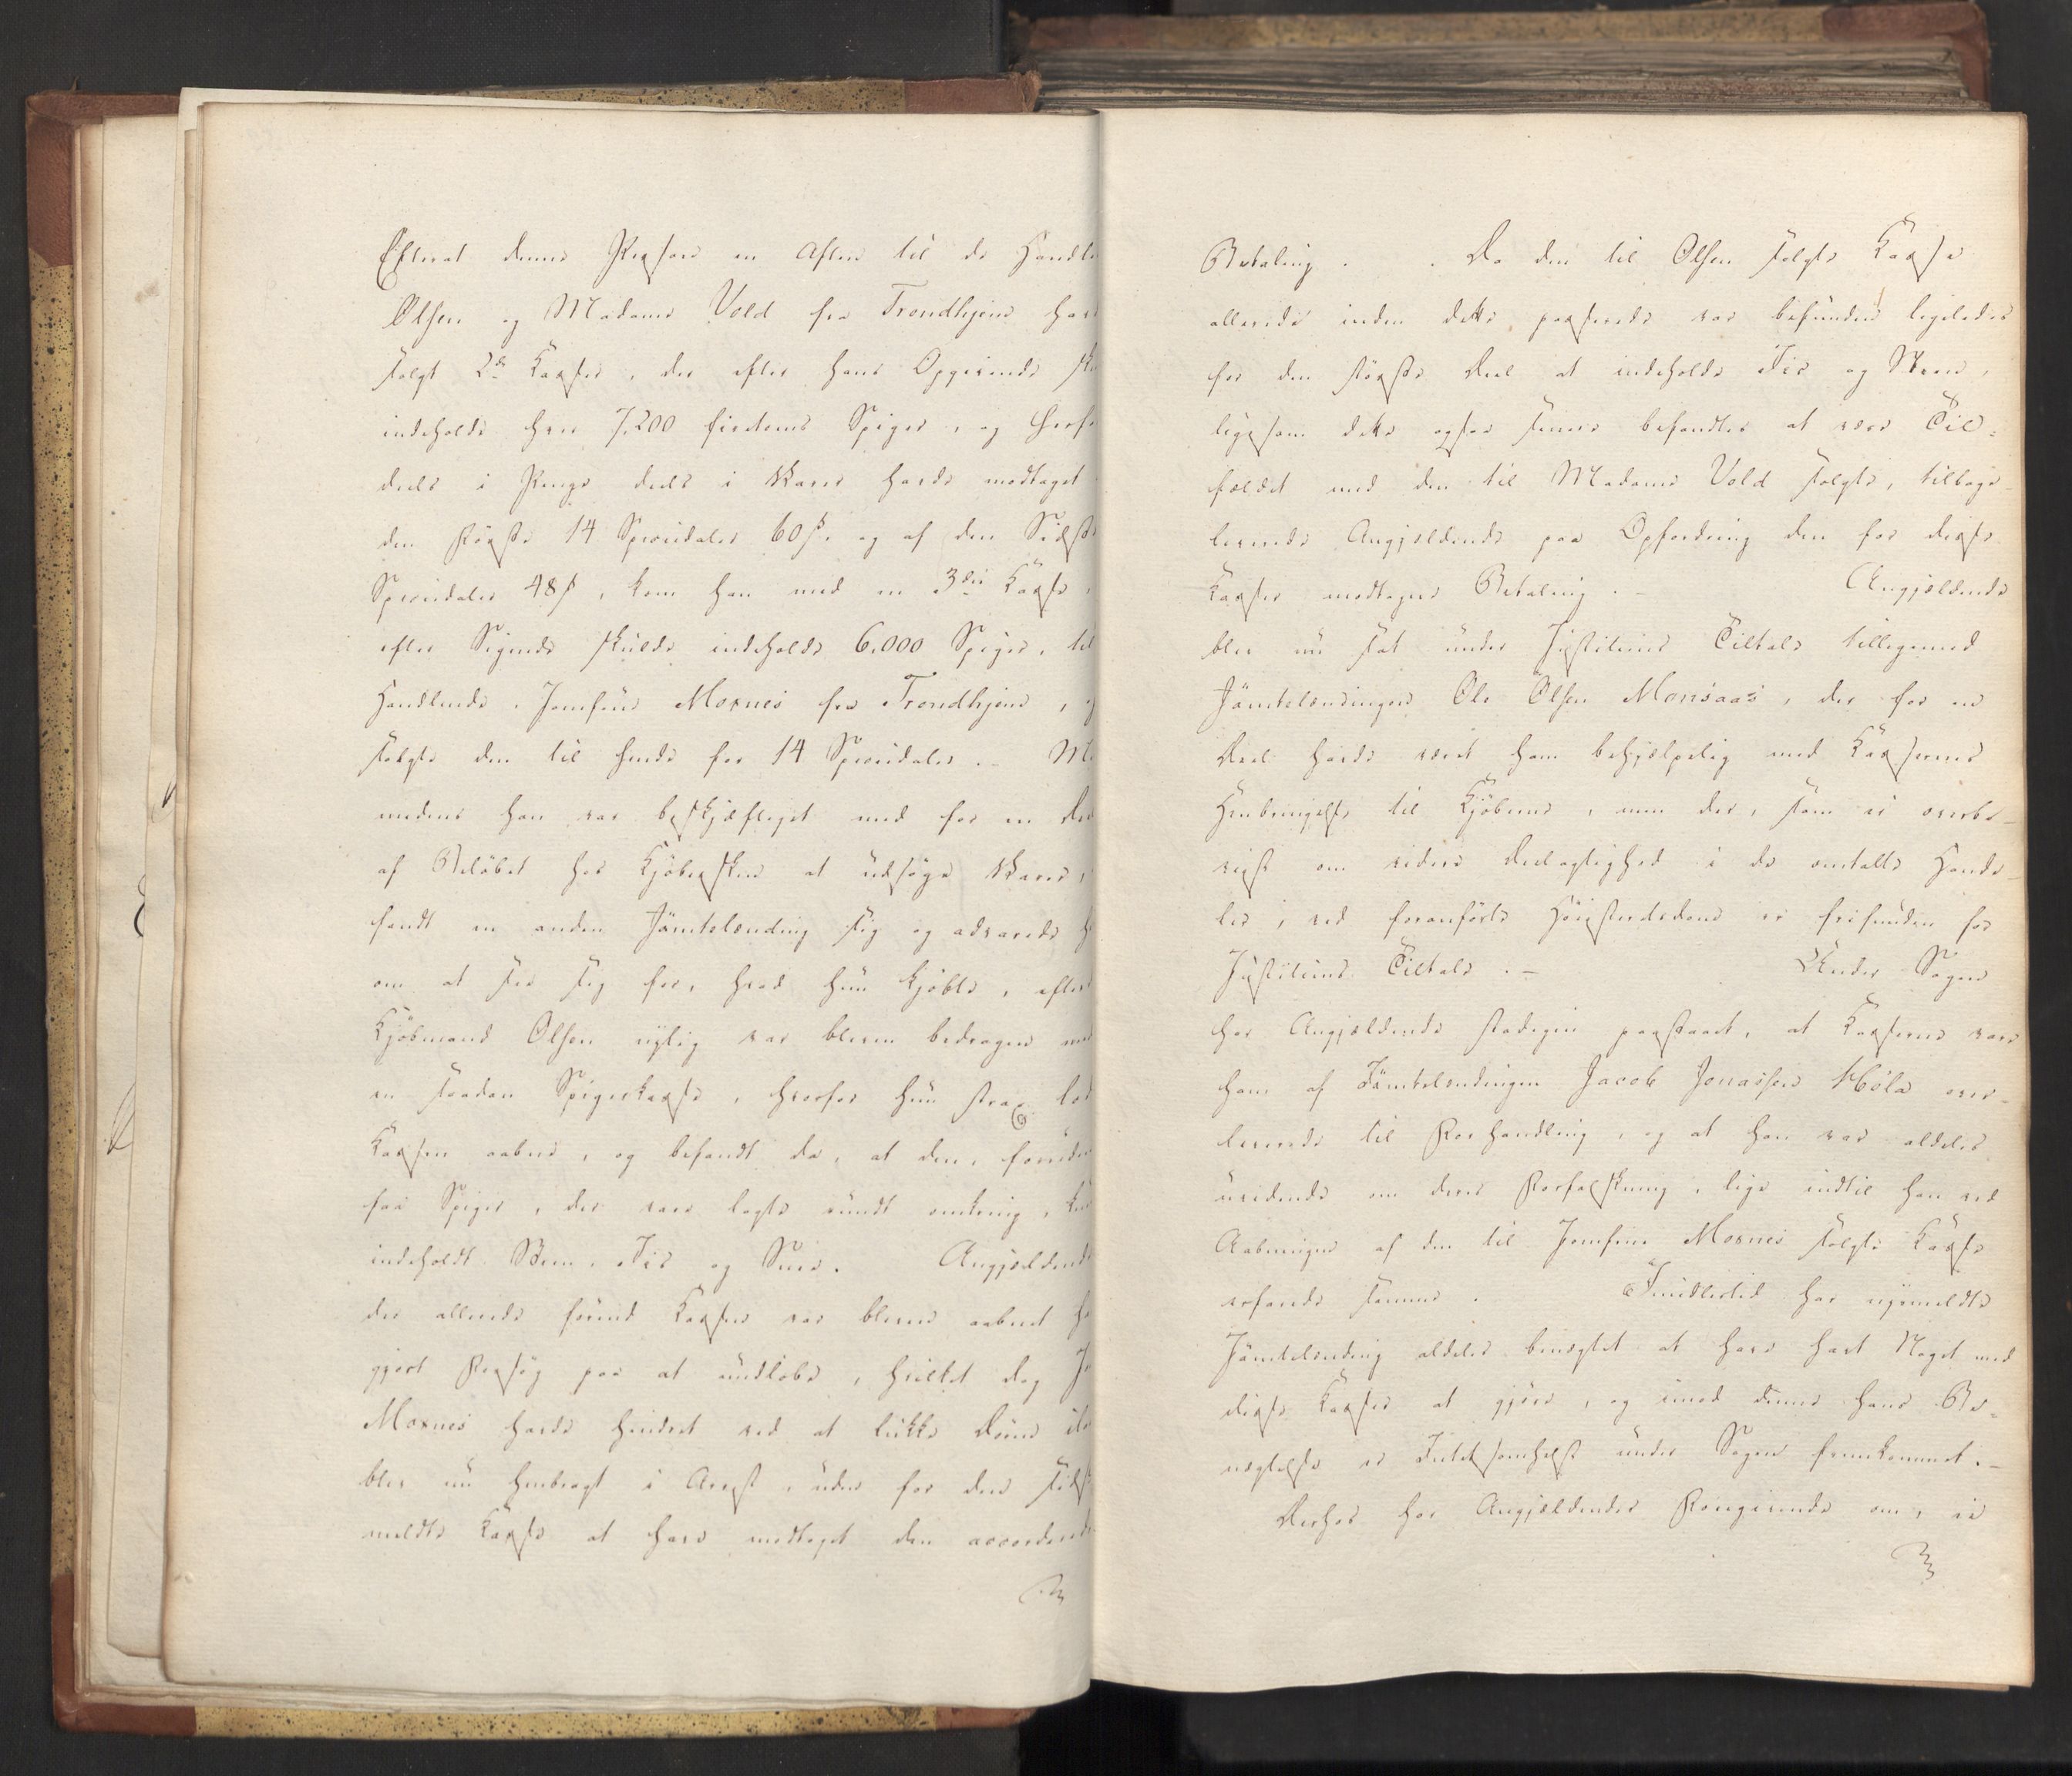 Efterat denne Person en Aften til de Handle
Olsen og Madame Vold fra Trondhjem hav
solgt 2de Kasser, der efter hans Opgivende sku
indeholde hver 7,200 fiirtoms Spiger, og herfo
deels i Penge deels i Varer havde modtaget
den Første 14 Speciedaler 60 s. og af den Sidste
Speciedaler 48 s, kom han med en 3die Kasse,
efter Sigende skulde indeholde 6,000 Spiger, til
Handlende Jomfrue Moxnes fra Trondhjem, og
solgte den til hende for 14 Speciedaler. – Me
medens han var beskjæftiget med for en Deel
af Beløbet hos Kjøbersken at udsøge Varer,
fandt en anden Jämtelænding sig og advarede he
om at see sig for, hvad hun kjøbte, efter
Kjøbmand Olsen nylig var bleven bedragen med
en saadan Spigerkasse, hvorfor hun strax lod
Kassen aabne, og befandt da, at den, foruden
faa Spiger, der vare lagte rundt omkring, kun
indeholdt Steen, Iis og Snee. Angjældende
der allerede førend Kassen var bleven aabnet ha
gjort Forsøg paa at undløbe, hvilket dog Jo
Moxnes havde hindret ved at lukke Døren ilæ
blev nu henbragt i Arrest, uden for den sidst
meldte Kasse at have modtaget den accorderede
Betaling. . Da den til Olsen solgte Kasse
allerede inden dette passerede var befunden ligeledes
for den største Deel at indeholde Iis og Steen,
ligesom dette ogsaa senere befandtes at være Til=
fældet med den til Madame Vold solgte, tilbage-
leverede Angjældende paa Opfordring den for disse
Kasser modtagne Betaling. – Angjældende
blev nu sat under Justitiens Tiltale tilligemed
Jämtelændingen Ole Olsen Monsaas, der for en
Deel havde været ham behjælpelig med Kassernes
Henbringelse til Kjøberne, men der, som ei overbe-
viist om videre Deelagtighed i de omtalte Hand-
ler, ved foranførte Høiesteretsdom er frifunden for
Justitiens Tiltale. – Under Sagen
har Angjældende stadigen paastaaet, at Kasserne vare
ham af Jämtelændingen Jacob Jonassen Höla over-
leverede til Forhandling, og at han var aldeles
uvidende om deres Forfalskning, lige indtil han ved
Aabningen af den til Jomfrue Moxnes solgte Kasse
erfarede samme. Imidlertid har nysmeldte
Jämtelænding aldeles benegtet at have havt Noget med
disse Kasser at gjøre, og imod denne hans Be-
negtelse er Intetsomhelst under Sagen fremkommet. –
Derhos har Angjældendes Foregivende om, ei